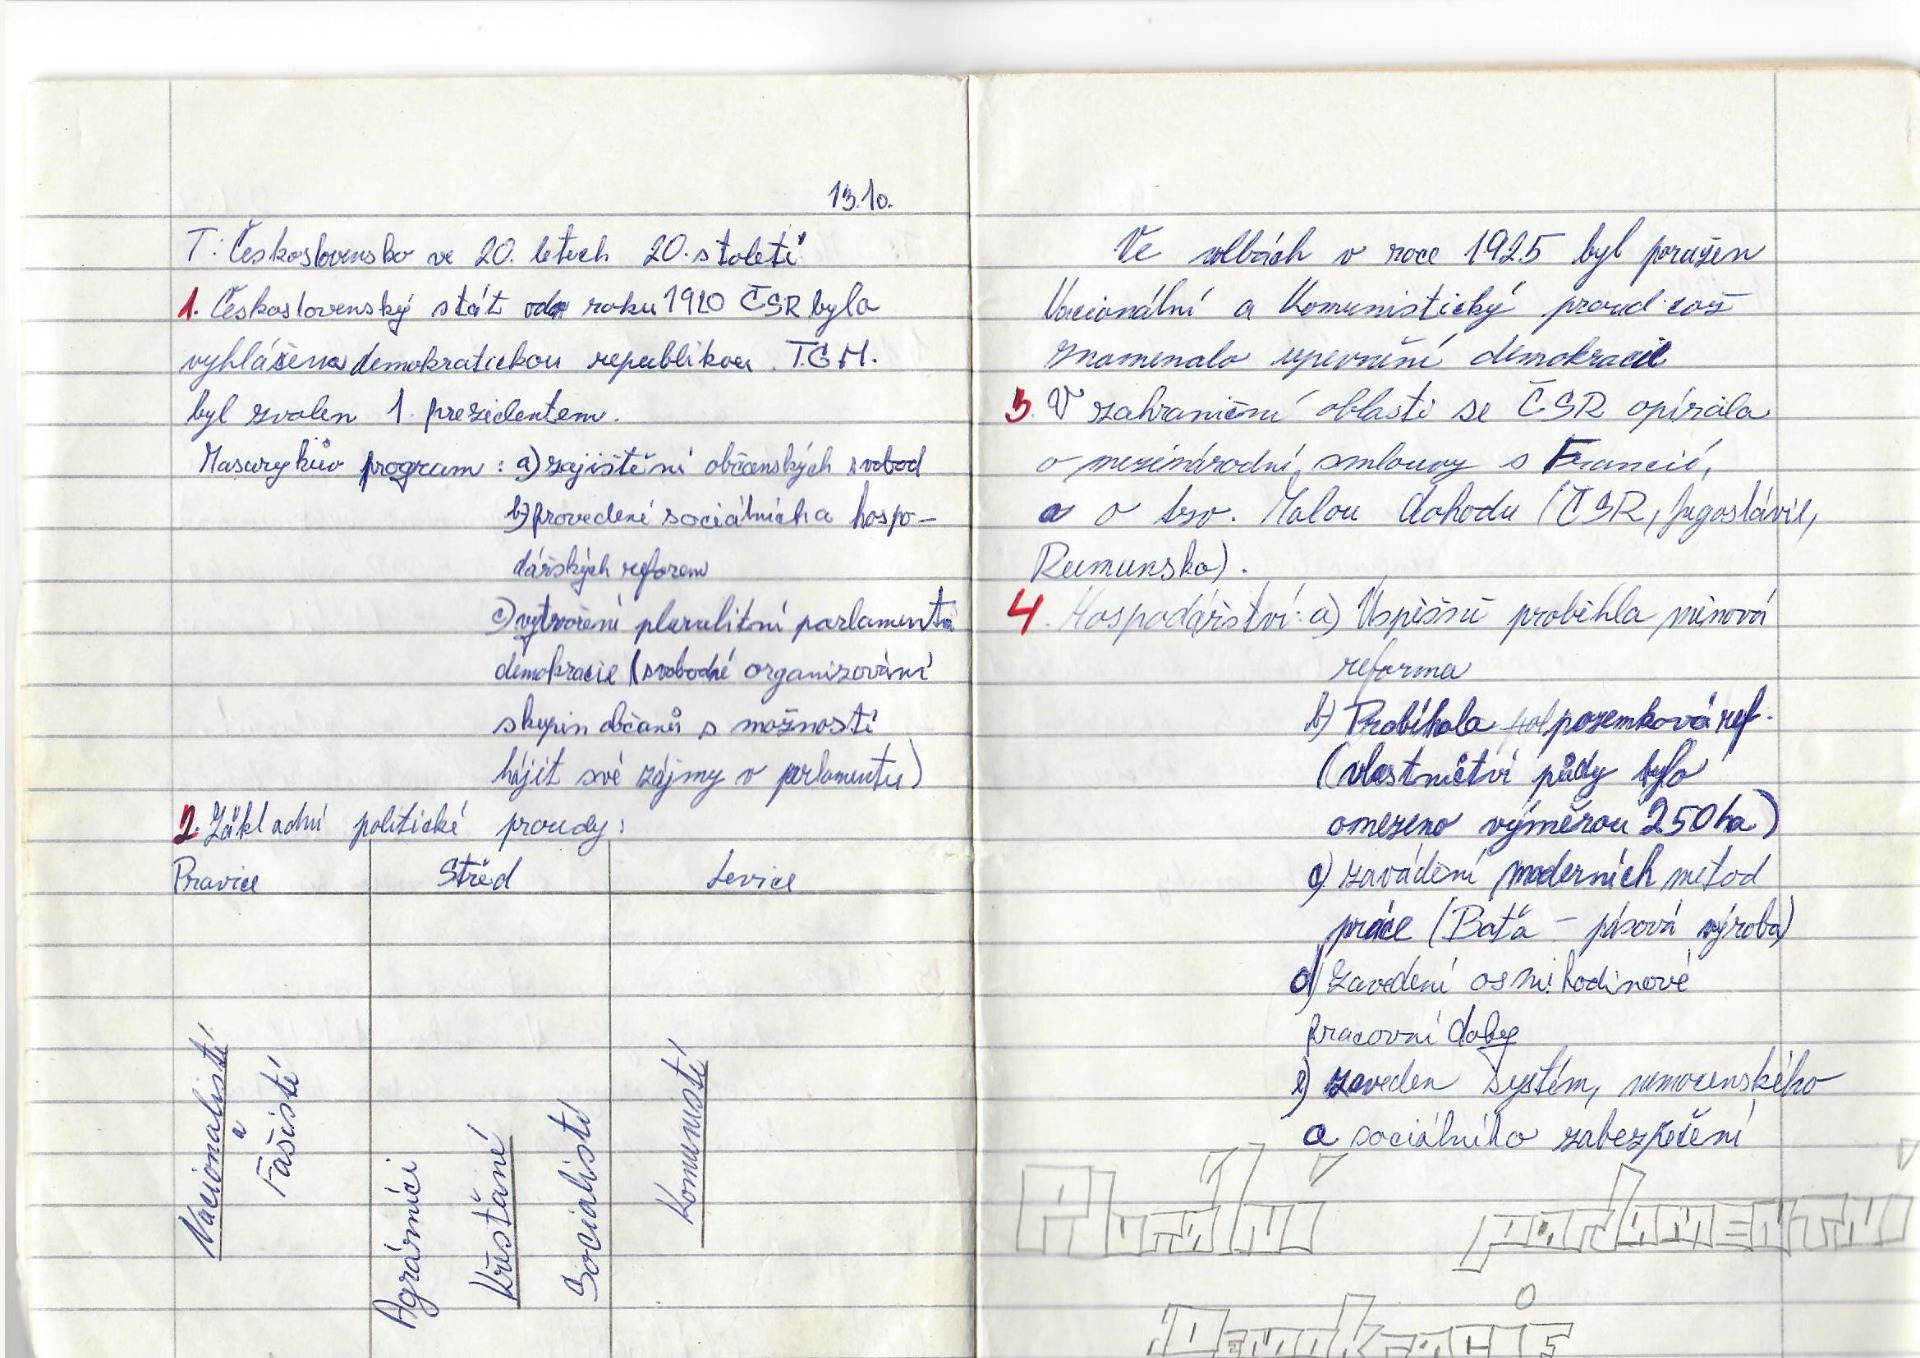 13.10.
T: Československo ve 20. letech 20. století
1. Československý stát od roku 1920 ČSR byla
vyhlášena demokratickou republikou. T.G.M.
byl zvolen 1. prezidentem.
Masarykův program: a) zajištění občanských svobod
b) provedení sociálních a hospo-
dářských reforem
c) vytvoření pluralitní parlamentní
demokracie (svobodné organizování
skupin občanů s možností
hájit své zájmy v parlamentu)
2. Základní politické proudy:
Pravice Střed Levice
Nacionalisté
a
Fašisté
Agrárníci
Křesťané
Socialisté
Komunisté
Ve volbách v roce 1925 byl poražen
Nacionální a Komunistický proud což
znamenalo upevnění demokracie
3. V zahraniční oblasti se ČSR opírala
o mezinárodní smlouvy s Francií,
a o tzv. Malou dohodu (ČSR, Jugoslávie,
Rumunsko).
4. Hospodářství: a) Úspěšně proběhla měnová
reforma
b) Probíhala pozemková ref.
(vlastnictví půdy bylo
omezeno výměrou 250 ha)
c) zavádění moderních metod
práce (Baťa - pásová výroba)
d) zavedení osmihodinové
pracovní doby
e) zaveden systém, nemocenského
a sociálního zabezpečení
Plurální parlamentní
Demokracie